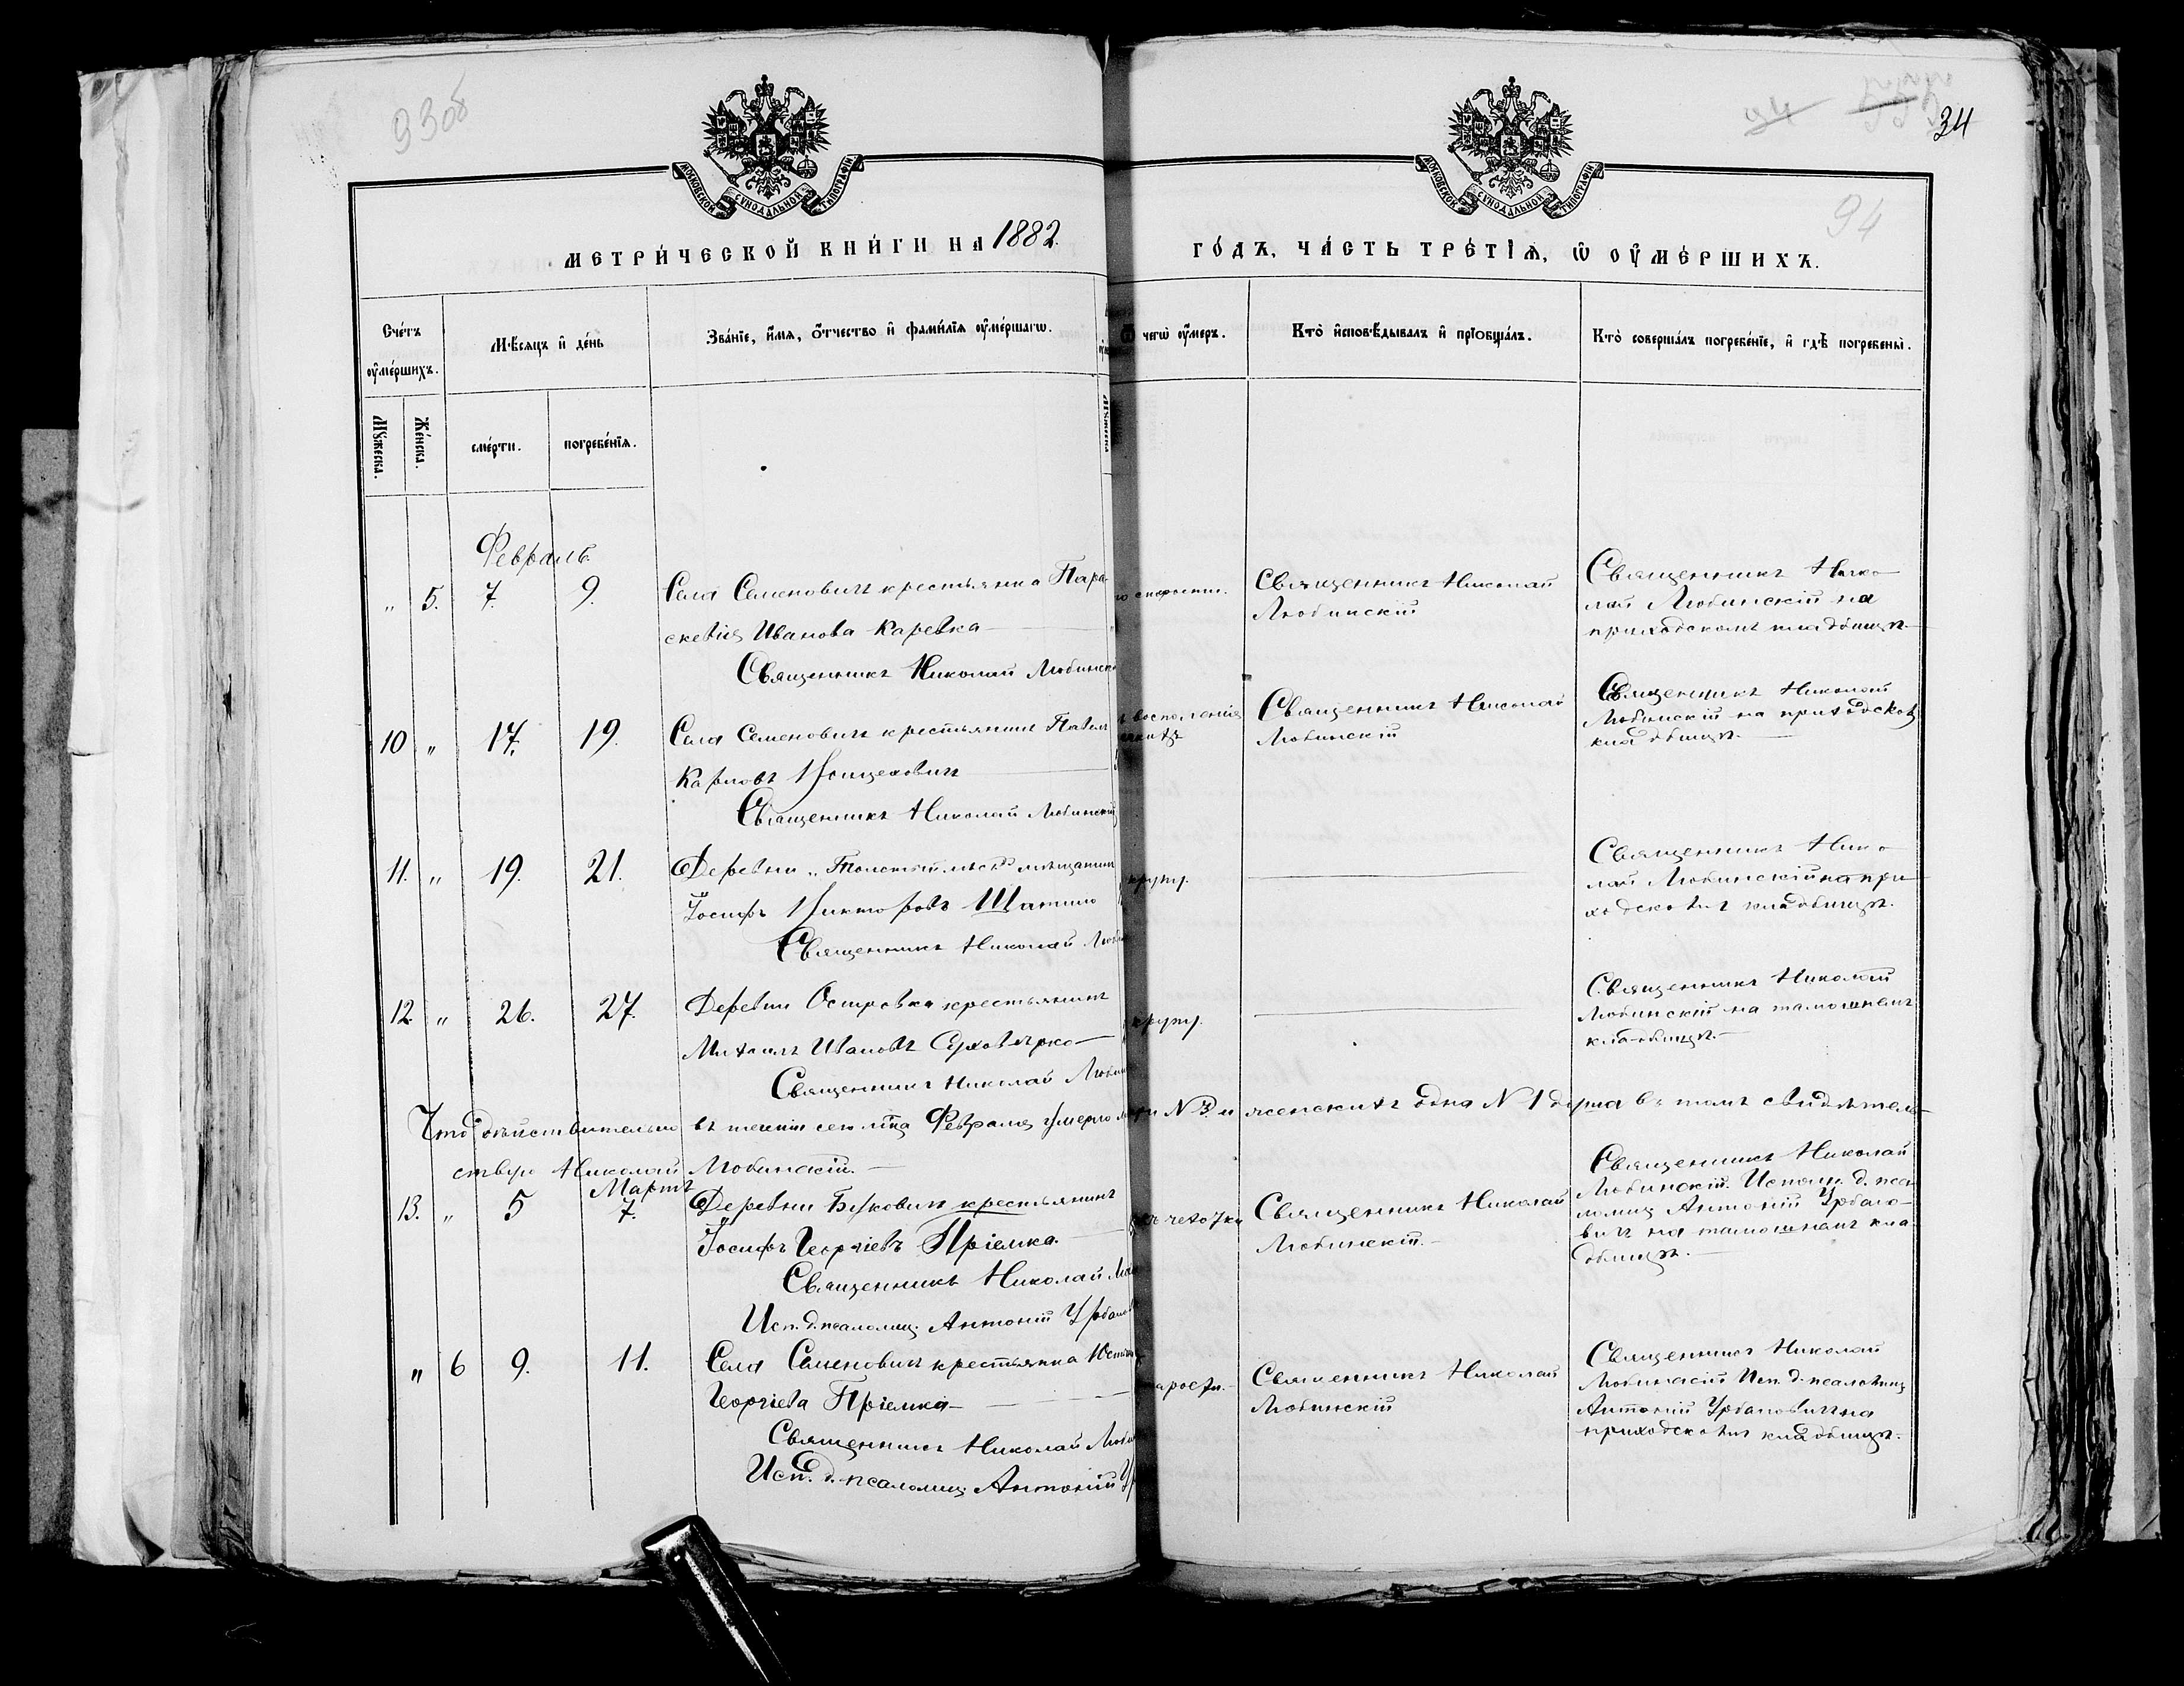 93об
34
94
94
МОСКОВСКОЙ СѴНОДАЛЬНОЙ ТИПОГРАФІИ
МОСКОВСКОЙ СѴНОДАЛЬНОЙ ТИПОГРАФІИ
МЕТРИ́ЧЕСКОЙ КНИ́ГИ НА 1882.
ГО́ДЪ, ЧА́СТЬ ТРЕ́ТІѦ, Ѡ ОУ҆МЕ́РШИХЪ.
Сче́тъ оу҆ме́ршихъ.
Мꙋжеска.
Же́нска.
Мѣ́сяцъ и҆ де́нь
сме́рти.
погребе́нїѧ.
Зва́нїе, и҆́мѧ, ѻ҆́тчество и҆ фами́лїѧ оу҆ме́ршагѡ.
Ѿ чегѡ̀ оу҆́меръ.
Кто̀ и҆сповѣ́дывалъ и҆ прїобща́лъ.
Кто̀ соверша́лъ погребе́нїе, и҆ гдѣ̀ погребены̀.
Февраль.
„ 5. 7. 9.
Села Семеновичъ крестьянка Пара-
скевія Иванова Каревка
Священникъ Николай Любинскі
Священникъ Николай
Любинскій
Священникъ Нико-
лай Любинскій на
приходскомъ кладбищѣ.
10 „ 17. 19.
Села Семеновичъ крестьянинъ Павелъ
Карповъ Войцеховичъ
Священникъ Николай Любинскій
воспаленія
Священникъ Николай
Любинскій
Священникъ Николай
Любинскій на приходском
кладбищѣ.
11. „ 19. 21.
Деревни мѣщанинъ
Іосифъ Викторовъ Шатило
Священникъ Николай Люби
крупу.
Священникъ Нико-
лай Любинскій на при-
ходскомъ кладбищѣ.
12. „ 26. 27.
Деревни Островка крестьянинъ
Михаилъ Ивановъ Суховѣрко
Священникъ Николай Любин
крупу.
Священникъ Николай
Любинскій на тамошнемъ
кладбищѣ.
Что дѣйствительно въ теченіи сего м-ца Февраля умерло № 3 и женскихъ одна № 1 душа въ томъ свидѣтель-
ствую Николай Любинскій.
Мартъ
13. „ 5 7.
Деревни крестьянинъ
Іосифъ Георгіевъ Пріемка.
Священникъ Николай Люб
Исп. д. псаломщ. Антоній Урбанов
чахотки
Священникъ Николай
Любинскій.
Священникъ Николай
Любинскій. Исполн. д. пса-
ломщ. Антоній Урбано-
вичъ на тамошнемъ кла-
дбищѣ.
„ 6 9. 11.
Села Семеновичъ крестьянка
Георгіева Пріемка
Священникъ Николай Люби
Исп. д. псаломщ. Антоній Ур
арости.
Священникъ Николай
Любинскій
Священникъ Николай
Любинскій Исп. д. псаломщ.
Антоній Урбановичъ на
приходскомъ кладбищѣ.